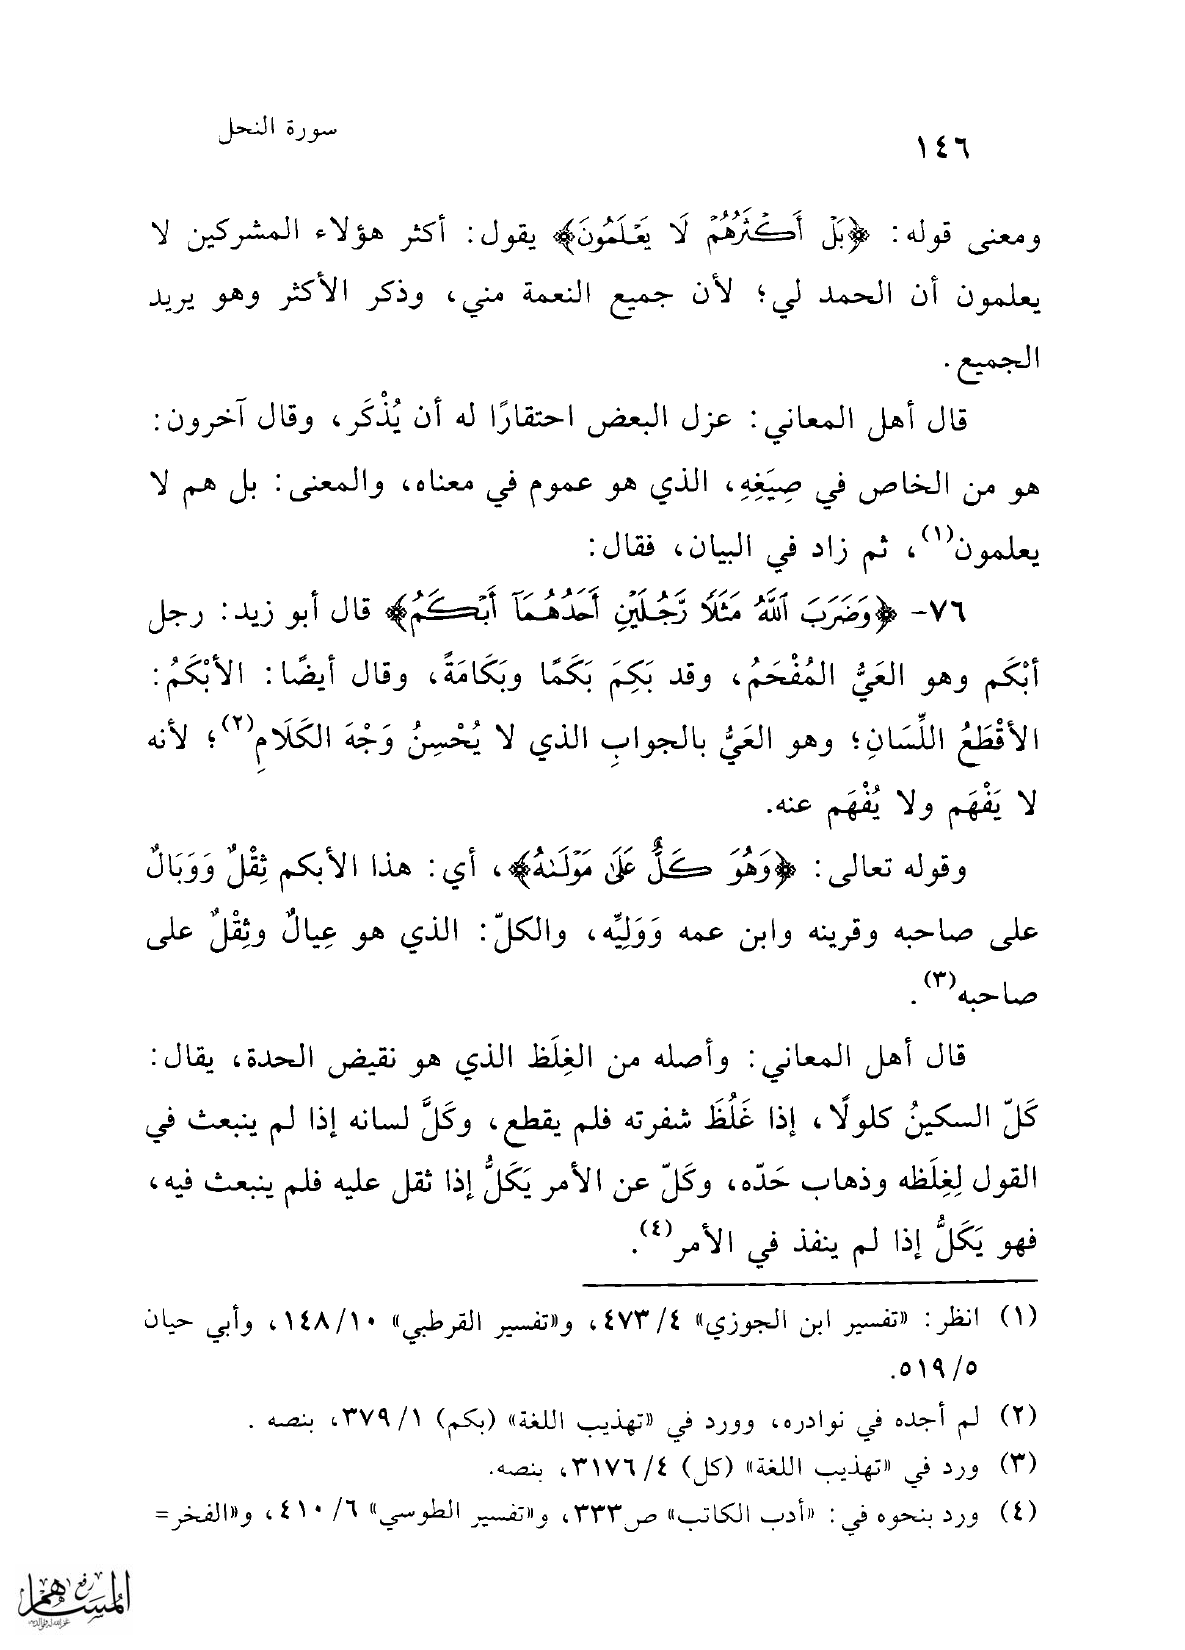 سورة النحل
١٤٦
ومعنى قوله: ﴿بَلْ أَكْثَرُهُمْ لَا يَعْلَمُونَ﴾ يقول: أكثر هؤلاء المشركين لا
يعلمون أن الحمد لي؛ لأن جميع النعمة مني، وذكر الأكثر وهو يريد
الجميع.
قال أهل المعاني: عزل البعض احتقارًا له أن يُذْكَر، وقال آخرون:
هو من الخاص في صِيَغِهِ، الذي هو عموم في معناه، والمعنى: بل هم لا
يعلمون(١)، ثم زاد في البيان، فقال:
٧٦- ﴿وَضَرَبَ ٱللَّهُ مَثَلًا رَّجُلَيْنِ أَحَدُهُمَآ أَبْكَمُ﴾ قال أبو زيد: رجل
أبْكَم وهو العَيُّ المُفْحَمُ، وقد بَكِمَ بَكَمًا وبَكَامَةً، وقال أيضًا: الأبْكَمُ:
الأقْطَعُ اللِّسَانِ؛ وهو العَيُّ بالجوابِ الذي لا يُحْسِنُ وَجْهَ الكَلَامِ(٢)؛ لأنه
لا يَفْهَم ولا يُفْهَم عنه.
وقوله تعالى: ﴿وَهُوَ كَلٌّ عَلَىٰ مَوْلَىٰهُ﴾، أي: هذا الأبكم ثِقْلٌ وَوَبَالٌ
على صاحبه وقرينه وابن عمه وَوَلِيِّه، والكلّ: الذي هو عِيالٌ وثِقْلٌ على
صاحبه(٣).
قال أهل المعاني: وأصله من الغِلَظ الذي هو نقيض الحدة، يقال:
كَلّ السكينُ كلولًا، إذا غَلُظَ شفرته فلم يقطع، وكَلَّ لسانه إذا لم ينبعث في
القول لِغِلَظه وذهاب حَدّه، وكَلّ عن الأمر يَكَلُّ إذا ثقل عليه فلم ينبعث فيه،
فهو يَكَلُّ إذا لم ينفذ في الأمر(٤).
(١) انظر: «تفسير ابن الجوزي» ٤/ ٤٧٣، و«تفسير القرطبي» ١٠/ ١٤٨، وأبي حيان
٥/ ٥١٩.
(٢) لم أجده في نوادره، وورد في «تهذيب اللغة» (بكم) ١/ ٣٧٩، بنصه .
(٣) ورد في «تهذيب اللغة» (كل) ٤/ ٣١٧٦، بنصه.
(٤) ورد بنحوه في: «أدب الكاتب» ص٣٣٣، و«تفسير الطوسي» ٦/ ٤١٠، و«الفخر=